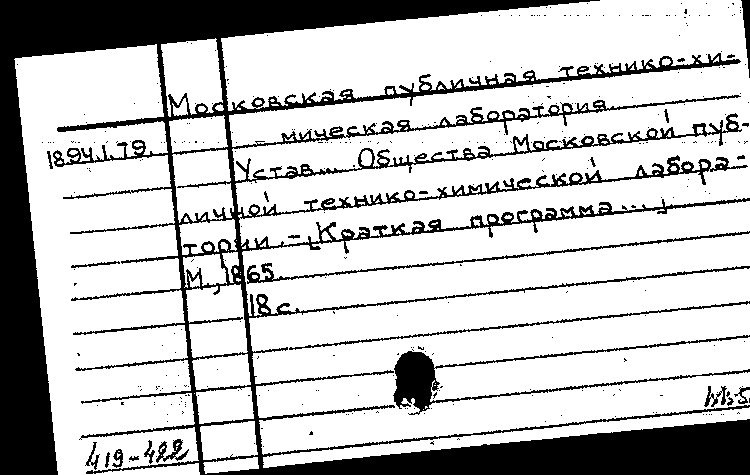 Московская публичная технико-хи-
мическая лаборатория
1894.1.79.
Устав... Общества Московской пуб-
личной технико-химической лабора-
тории. - [Краткая программа...]
М., 1865.
18 с.
419-422